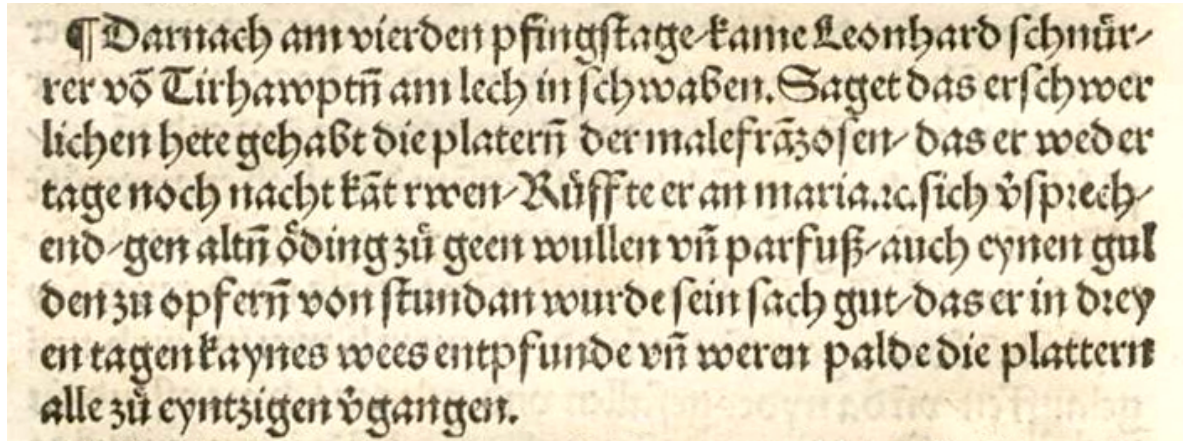 ¶ Darnach am vierden pfingſtage/ kame Leonhard ſchnuͤr/
rer võ Tirhawptñ am lech in ſchwaben. Saget das er ſchwer
lichen hete gehabt die platerñ der malefrãzoſen/ das er weder
tage noch nacht kãt rwen/ Ruͤffte er an maria.ꝛc. ſich v̉ſprech/
end/ gen altñ oͤding zuͤ geen wullen vñ parfuß/ auch eynen gul
den zu opferñ von ſtundan wurde ſein ſach gut/ das er in drey
en tagen kaynes wees entpfunde vñ weren palde die plattern
alle zuͤ eyntzigen v̉gangen.